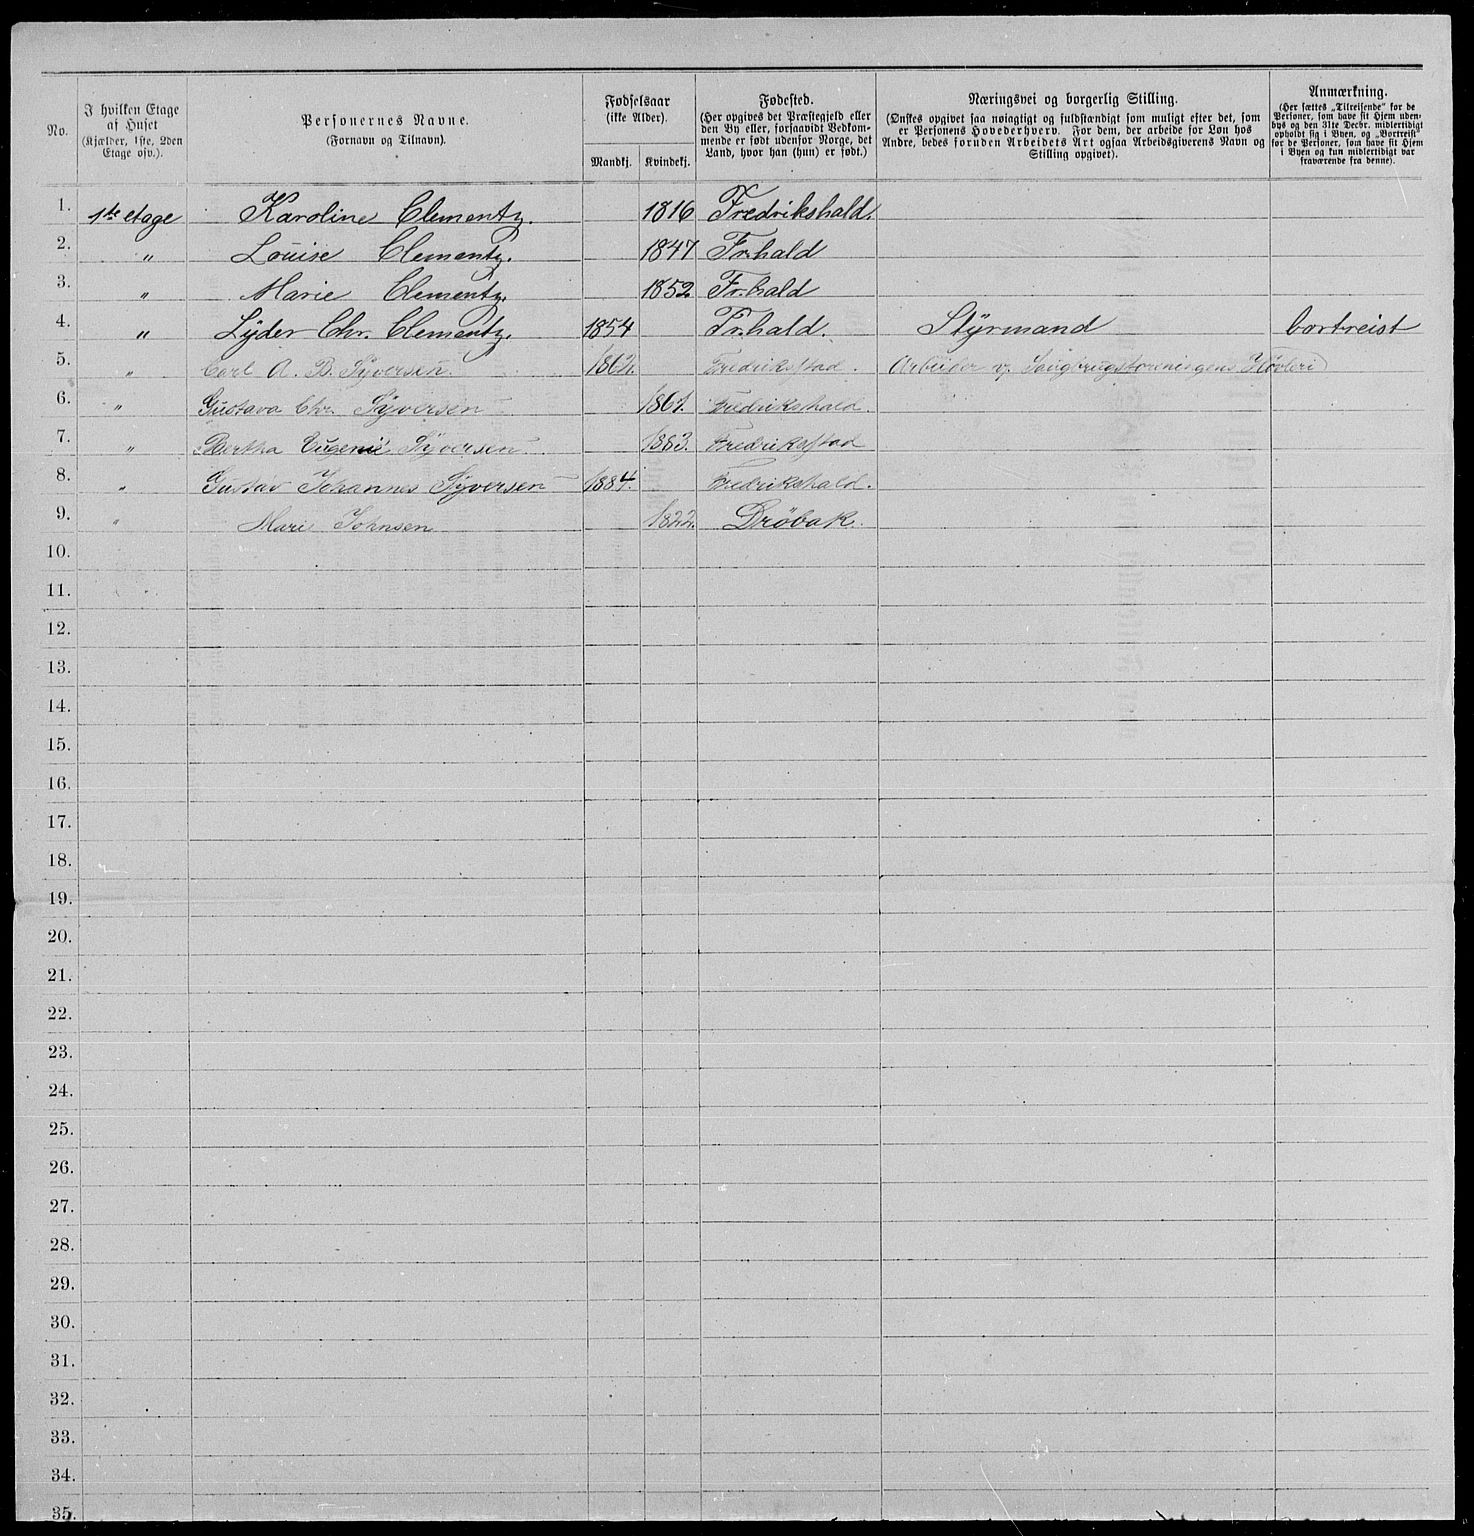 No.
I hvilken Etage
af Huset
(Kjælder, 1ste, 2den
Etage osv.).
Personernes Navne.
(Fornavn og Tilnavn).
Fødselsaar
(ikke Alder).
Mandkj. Kvindekj.
Fødested.
(Her opgives det Præstegjeld eller
den By eller, forsaavidt Vedkom-
mende er født udenfor Norge, det
Land, hvor han (hun) er født.)
Næringsvei og borgerlig Stilling.
(Ønskes opgivet saa nøiagtigt og fuldstændigt som muligt efter det, som
er Personens Hovederhverv. For dem, der arbeide for Løn hos
Andre, bedes foruden Arbeidets Art ogsaa Arbeidsgiverens Navn og
Stilling opgivet).
Anmærkning.
(Her sættes „Tilreisende" for de
Personer, som have sit Hjem uden-
bys og den 31te Decbr. midlertidigt
opholdt sig i Byen, og „Bortreist"
for de Personer, som have sit Hjem
i Byen og kun midlertidigt var
fraværende fra denne).
1. 1ste etage Karoline Clementz. 1816 Fredrikshald.
2. " Louise Clementz. 1847 Fr.hald
3. " Marie Clementz. 1852 Fr.hald
4. " Lyder Chr. Clementz. 1854 Fr.hald. Styrmand bortreist
5. " Carl A. B. Syversen 1862. Fredrikstad. Arbeider v. Saugbrugsforeningens Høvleri
6. " Gustava Chr. Syversen 1861. Fredrikshald.
7. " Bertha Eugenie Syversen 1883. Fredrikstad
8. " Gustav Johannes Syversen 1884. Fredrikshald.
9. " Marie Johnsen 1822. Drøbak.
10.
11.
12.
13.
14.
15.
16.
17.
18.
19.
20.
21.
22.
23.
24.
25.
26.
27.
28.
29.
30.
31.
32.
33.
34.
35.